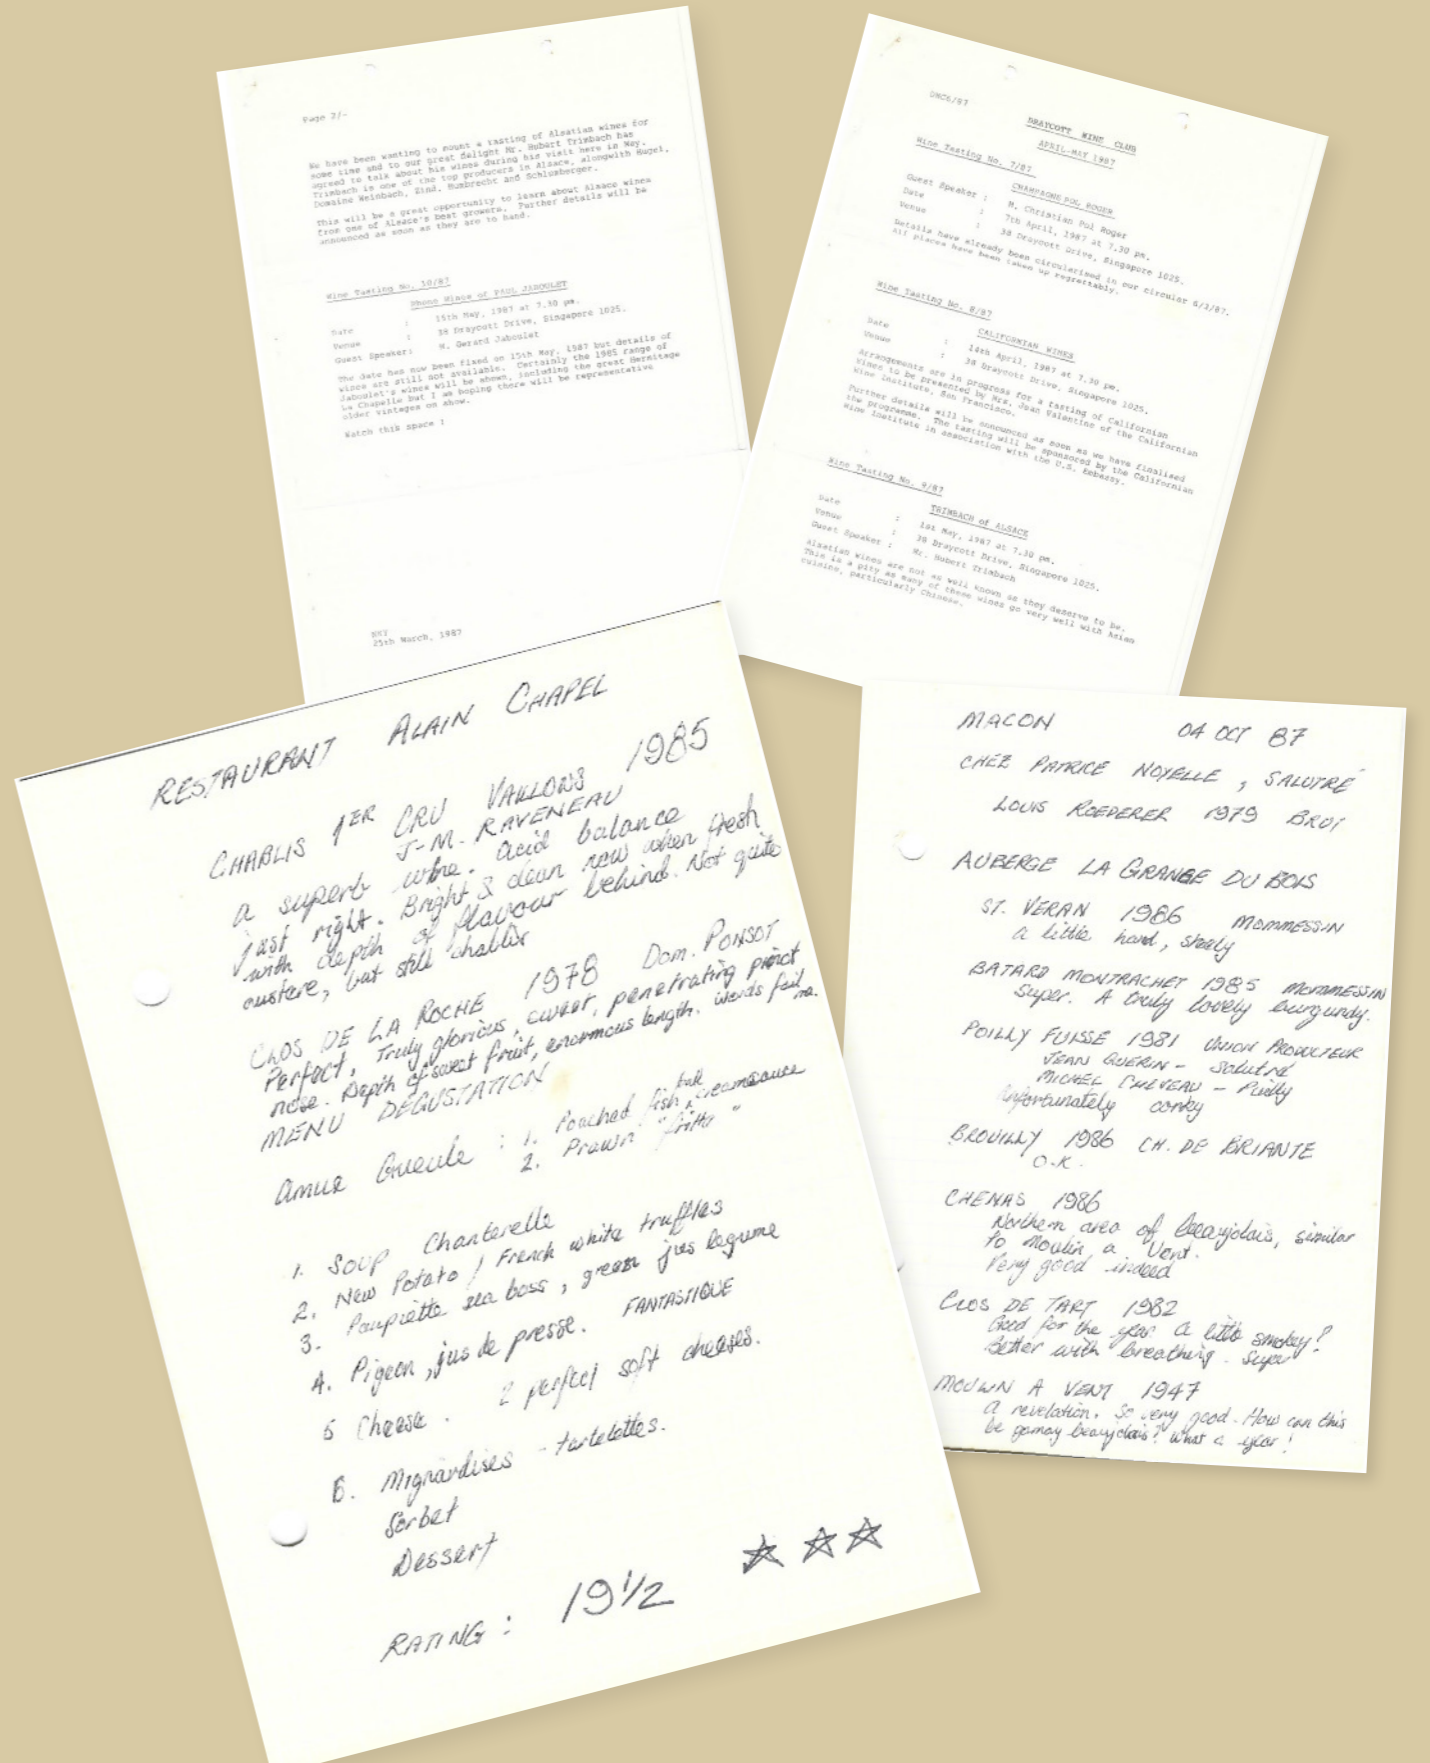 Page 2/-
We have been wanting to mount a tasting of Alsatian wines for
some time and to our great delight Mr. Hubert Trimbach has
agreed to talk about his wines during his visit here in May.
Trimbach is one of the top producers in Alsace, alongwith Hugel,
Domaine Weinbach, Zind. Humbrecht and Schlumberger.
This will be a great opportunity to learn about Alsace wines
from one of Alsace's best growers. Further details will be
announced as soon as they are to hand.
Wine Tasting No. 10/87
Rhone Wines of PAUL JABOULET
Date : 15th May, 1987 at 7.30 pm.
Venue : 38 Draycott Drive, Singapore 1025.
Guest Speaker: M. Gerard Jaboulet
The date has now been fixed on 15th May, 1987 but details of
wines are still not available. Certainly the 1985 range of
Jaboulet's wines will be shown, including the great Hermitage
La Chapelle but I am hoping there will be representative
older vintages on show.
Watch this space !
25th March, 1987
DWC6/87
DRAYCOTT WINE CLUB
APRIL-MAY 1987
Wine Tasting No. 7/87
CHAMPAGNE POL ROGER
Guest Speaker : M. Christian Pol Roger
Date : 7th April, 1987 at 7.30 pm.
Venue : 38 Draycott Drive, Singapore 1025.
Details have already been circularised in our circular 6/3/87.
All places have been taken up regrettably.
Wine Tasting No. 8/87
CALIFORNIAN WINES
Date : 14th April, 1987 at 7.30 pm.
Venue : 38 Draycott Drive, Singapore 1025.
Arrangements are in progress for a tasting of Californian
wines to be presented by Mrs. Joan Valentine of the Californian
Wine Institute, San Francisco.
Further details will be announced as soon as we have finalised
the programme. The tasting will be sponsored by the Californian
Wine Institute in association with the U.S. Embassy.
Wine Tasting No. 9/87
TRIMBACH of ALSACE
Date : 1st May, 1987 at 7.30 pm.
Venue : 38 Draycott Drive, Singapore 1025.
Guest Speaker : Mr. Hubert Trimbach
Alsatian wines are not as well known as they deserve to be.
This is a pity as many of these wines go very well with Asian
cuisine, particularly Chinese.
RESTAURANT ALAIN CHAPEL
CHABLIS 1ER CRU VAILLONS 1985
J-M. RAVENEAU
a superb wine. acid balance
just right. Bright & clean now when fresh
with depth of flavour behind. Not quite
austere, but still chablis
CLOS DE LA ROCHE 1978 Dom. PONSOT
Perfect, Truly glorious, sweet, penetrating pinot
nose. Depth of sweet fruit, enormous length. words fail me.
MENU DEGUSTATION
Amuse Gueule : 1. Poached fish, creamsauce
2. Prawn "fritte"
1. SOUP Chanterelle
2. New Potato / French white truffles
3. Paupiette sea bass, green jus legume
4. Pigeon, jus de presse. FANTASTIQUE
5 Cheese. 2 perfect soft cheeses.
6. Mignardises - tartelettes.
Sorbet
Dessert
RATING : 19 1/2 ☆ ☆ ☆
MACON 04 OCT 87
CHEZ PATRICE NOYELLE, SALUTRÉ
LOUIS ROEDERER 1979 BRUT
AUBERGE LA GRANGE DU BOIS
ST. VERAN 1986 MOMMESSIN
a little hard, steely
BATARD MONTRACHET 1985 MOMMESSIN
Super. A truly lovely burgundy.
POILLY FUISSE 1981 UNION PRODUCTEUR
JEAN GUERIN - Salutré
MICHEL CHEVEAU - Puilly
unfortunately corky
BROUILLY 1986 CH. DE BRIANTE
O.K.
CHENAS 1986
Northern area of beaujolais, similar
to Moulin a Vent.
Very good indeed
CLOS DE TART 1982
Good for the year. a little smokey?
Better with breathing. Super
MOULIN A VENT 1947
A revelation. So very good. How can this
be gamay beaujolais? What a year!